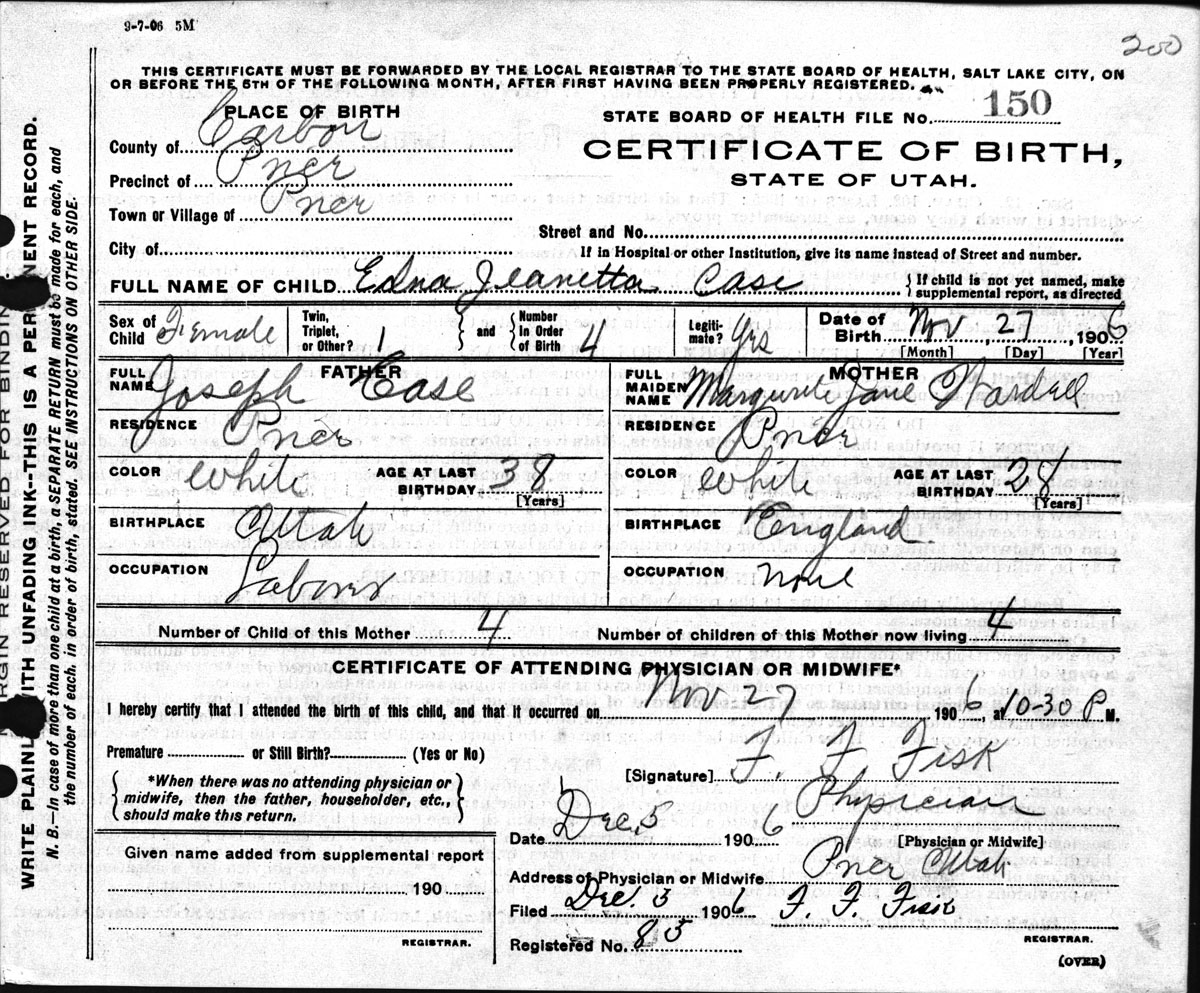 9-7-06 5M
200
THIS CERTIFICATE MUST BE FORWARDED BY THE LOCAL REGISTRAR TO THE STATE BOARD OF HEALTH, SALT LAKE CITY, ON
OR BEFORE THE 5TH OF THE FOLLOWING MONTH, AFTER FIRST HAVING BEEN PROPERLY REGISTERED.
PLACE OF BIRTH
STATE BOARD OF HEALTH FILE No. 150
County of Carbon
CERTIFICATE OF BIRTH,
Precinct of Pricr
STATE OF UTAH.
Town or Village of Pricr
Street and No.
City of
If in Hospital or other Institution, give its name instead of Street and number.
FULL NAME OF CHILD Edna Jeanetta Case { If child is not yet named, make
supplemental report, as directed
Sex of Child Female Twin, Triplet, or Other? 1 } and { Number In Order of Birth 4 Legiti-mate? Yes Date of Birth Nov 27, 1906
[Month] [Day] [Year]
FATHER
FULL NAME Joseph Case
MOTHER
FULL MAIDEN NAME Margurite Jane Wardell
RESIDENCE Pricr
RESIDENCE Pricr
COLOR White AGE AT LAST BIRTHDAY 38 [Years]
COLOR White AGE AT LAST BIRTHDAY 28 [Years]
BIRTHPLACE Utah
BIRTHPLACE England
OCCUPATION Laborer
OCCUPATION None
Number of Child of this Mother 4 Number of children of this Mother now living 4
CERTIFICATE OF ATTENDING PHYSICIAN OR MIDWIFE*
I hereby certify that I attended the birth of this child, and that it occurred on Nov 27, 1906, at 10-30 P M.
Premature or Still Birth? (Yes or No)
{ *When there was no attending physician or
midwife, then the father, householder, etc.,
should make this return. }
[Signature] F. F. Fisk
Physician
Date Dec. 5 1906
[Physician or Midwife]
Given name added from supplemental report
190
REGISTRAR.
Address of Physician or Midwife Pricr Utah
Filed Dec. 5 1906 F. F. Fisk
Registered No. 85
REGISTRAR.
(OVER)
MARGIN RESERVED FOR BINDING
WRITE PLAINLY WITH UNFADING INK--THIS IS A PERMANENT RECORD.
N. B.—In case of more than one child at a birth, a SEPARATE RETURN must be made for each, and
the number of each, in order of birth, stated. SEE INSTRUCTIONS ON OTHER SIDE.